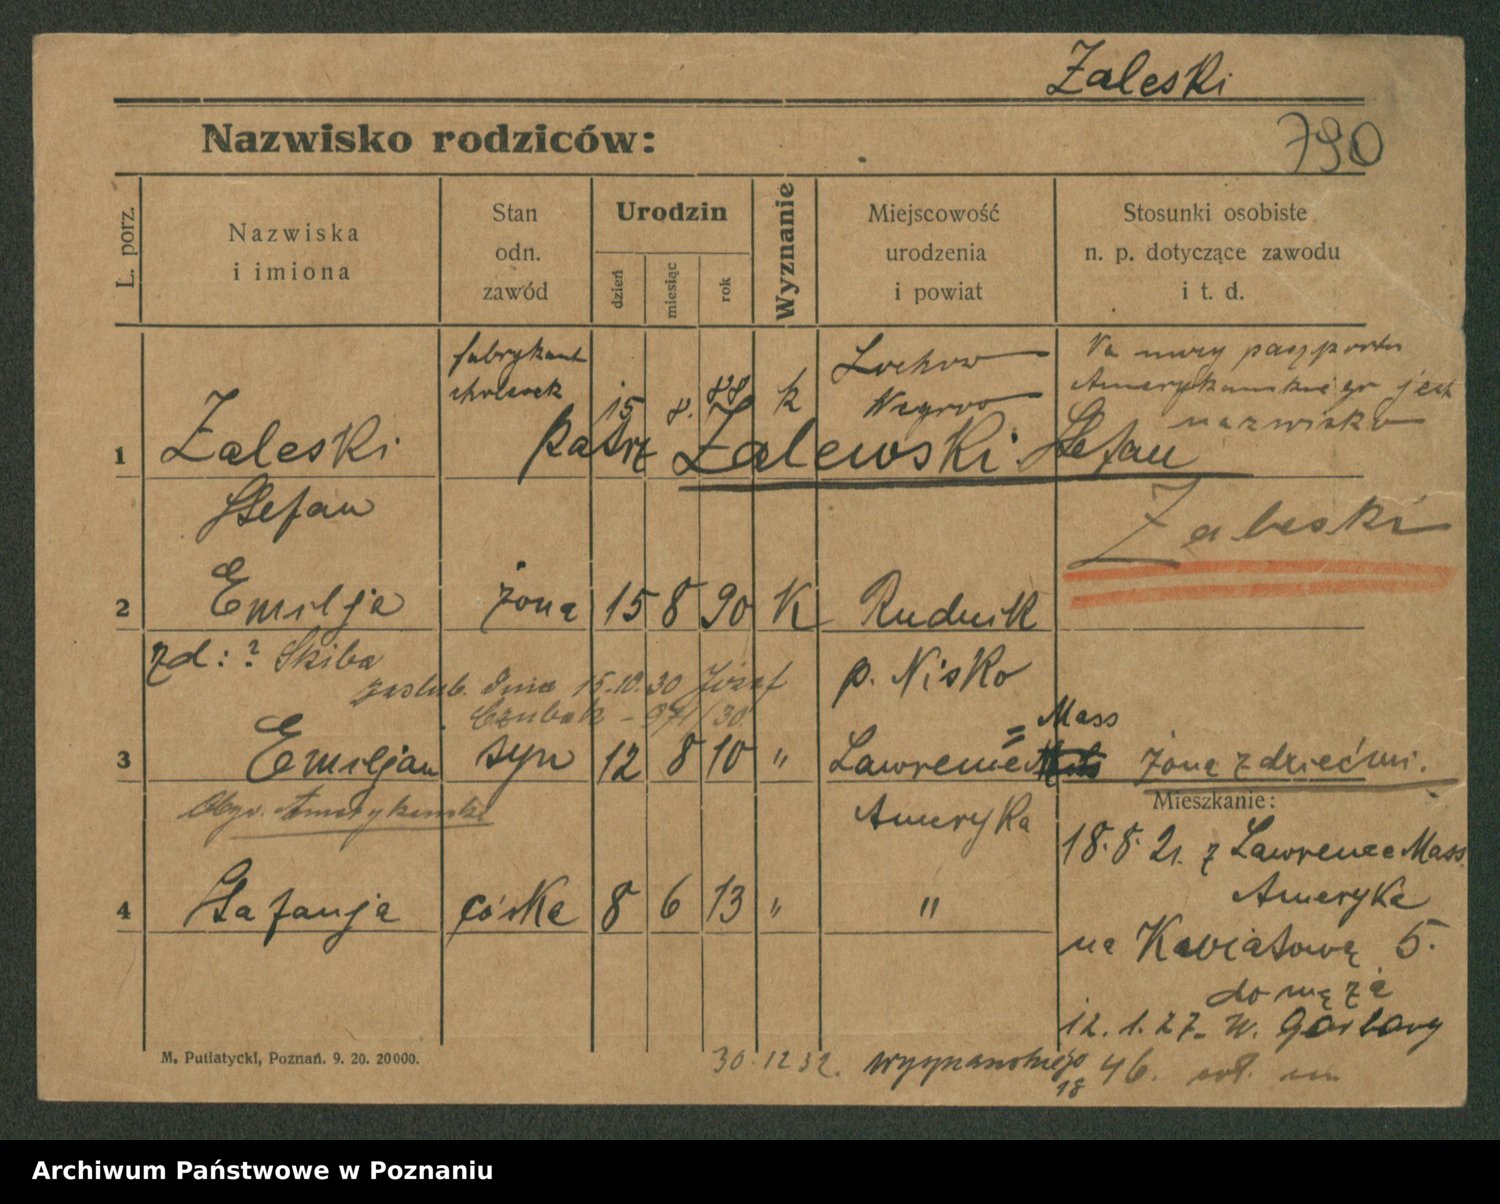 Zaleski
790
Nazwisko rodziców:
L. porz.
Nazwiska
i imiona
Stan
odn.
zawód
Urodzin
dzień
miesiąc
rok
Wyznanie
Miejscowość
urodzenia
i powiat
Stosunki osobiste
n. p. dotyczące zawodu
i t. d.
fabrykant
cholewek
15 8. 88 k
Lochow
Węgrow
Na mocy paszportu
Amerykańskiego jest
nazwisko
1 Zaleski
patrz Zalewski Stefan
Stefan
Zaleski
2 Emilja żona 15 8 90 K Rudnik
zd: ? Skiba
p. Nisko
zaślub. dnia 15.10.30 Józef
Czubak - 971/30
= Mass
3 Emiljan syn 12 8 10 " Lawrence
żona z dziećmi.
Obyw. Amerykański
Ameryka
Mieszkanie:
18.8.21. z Lawrence Mass
Ameryka
4 Stefanja córka 8 6 13 " "
na Kwiatową 5.
do męża
12.1.27. W. Garbary
46.
M. Putiatycki, Poznań. 9. 20. 20000.
30.12 32. Wyspiańskiego
18
Archiwum Państwowe w Poznaniu